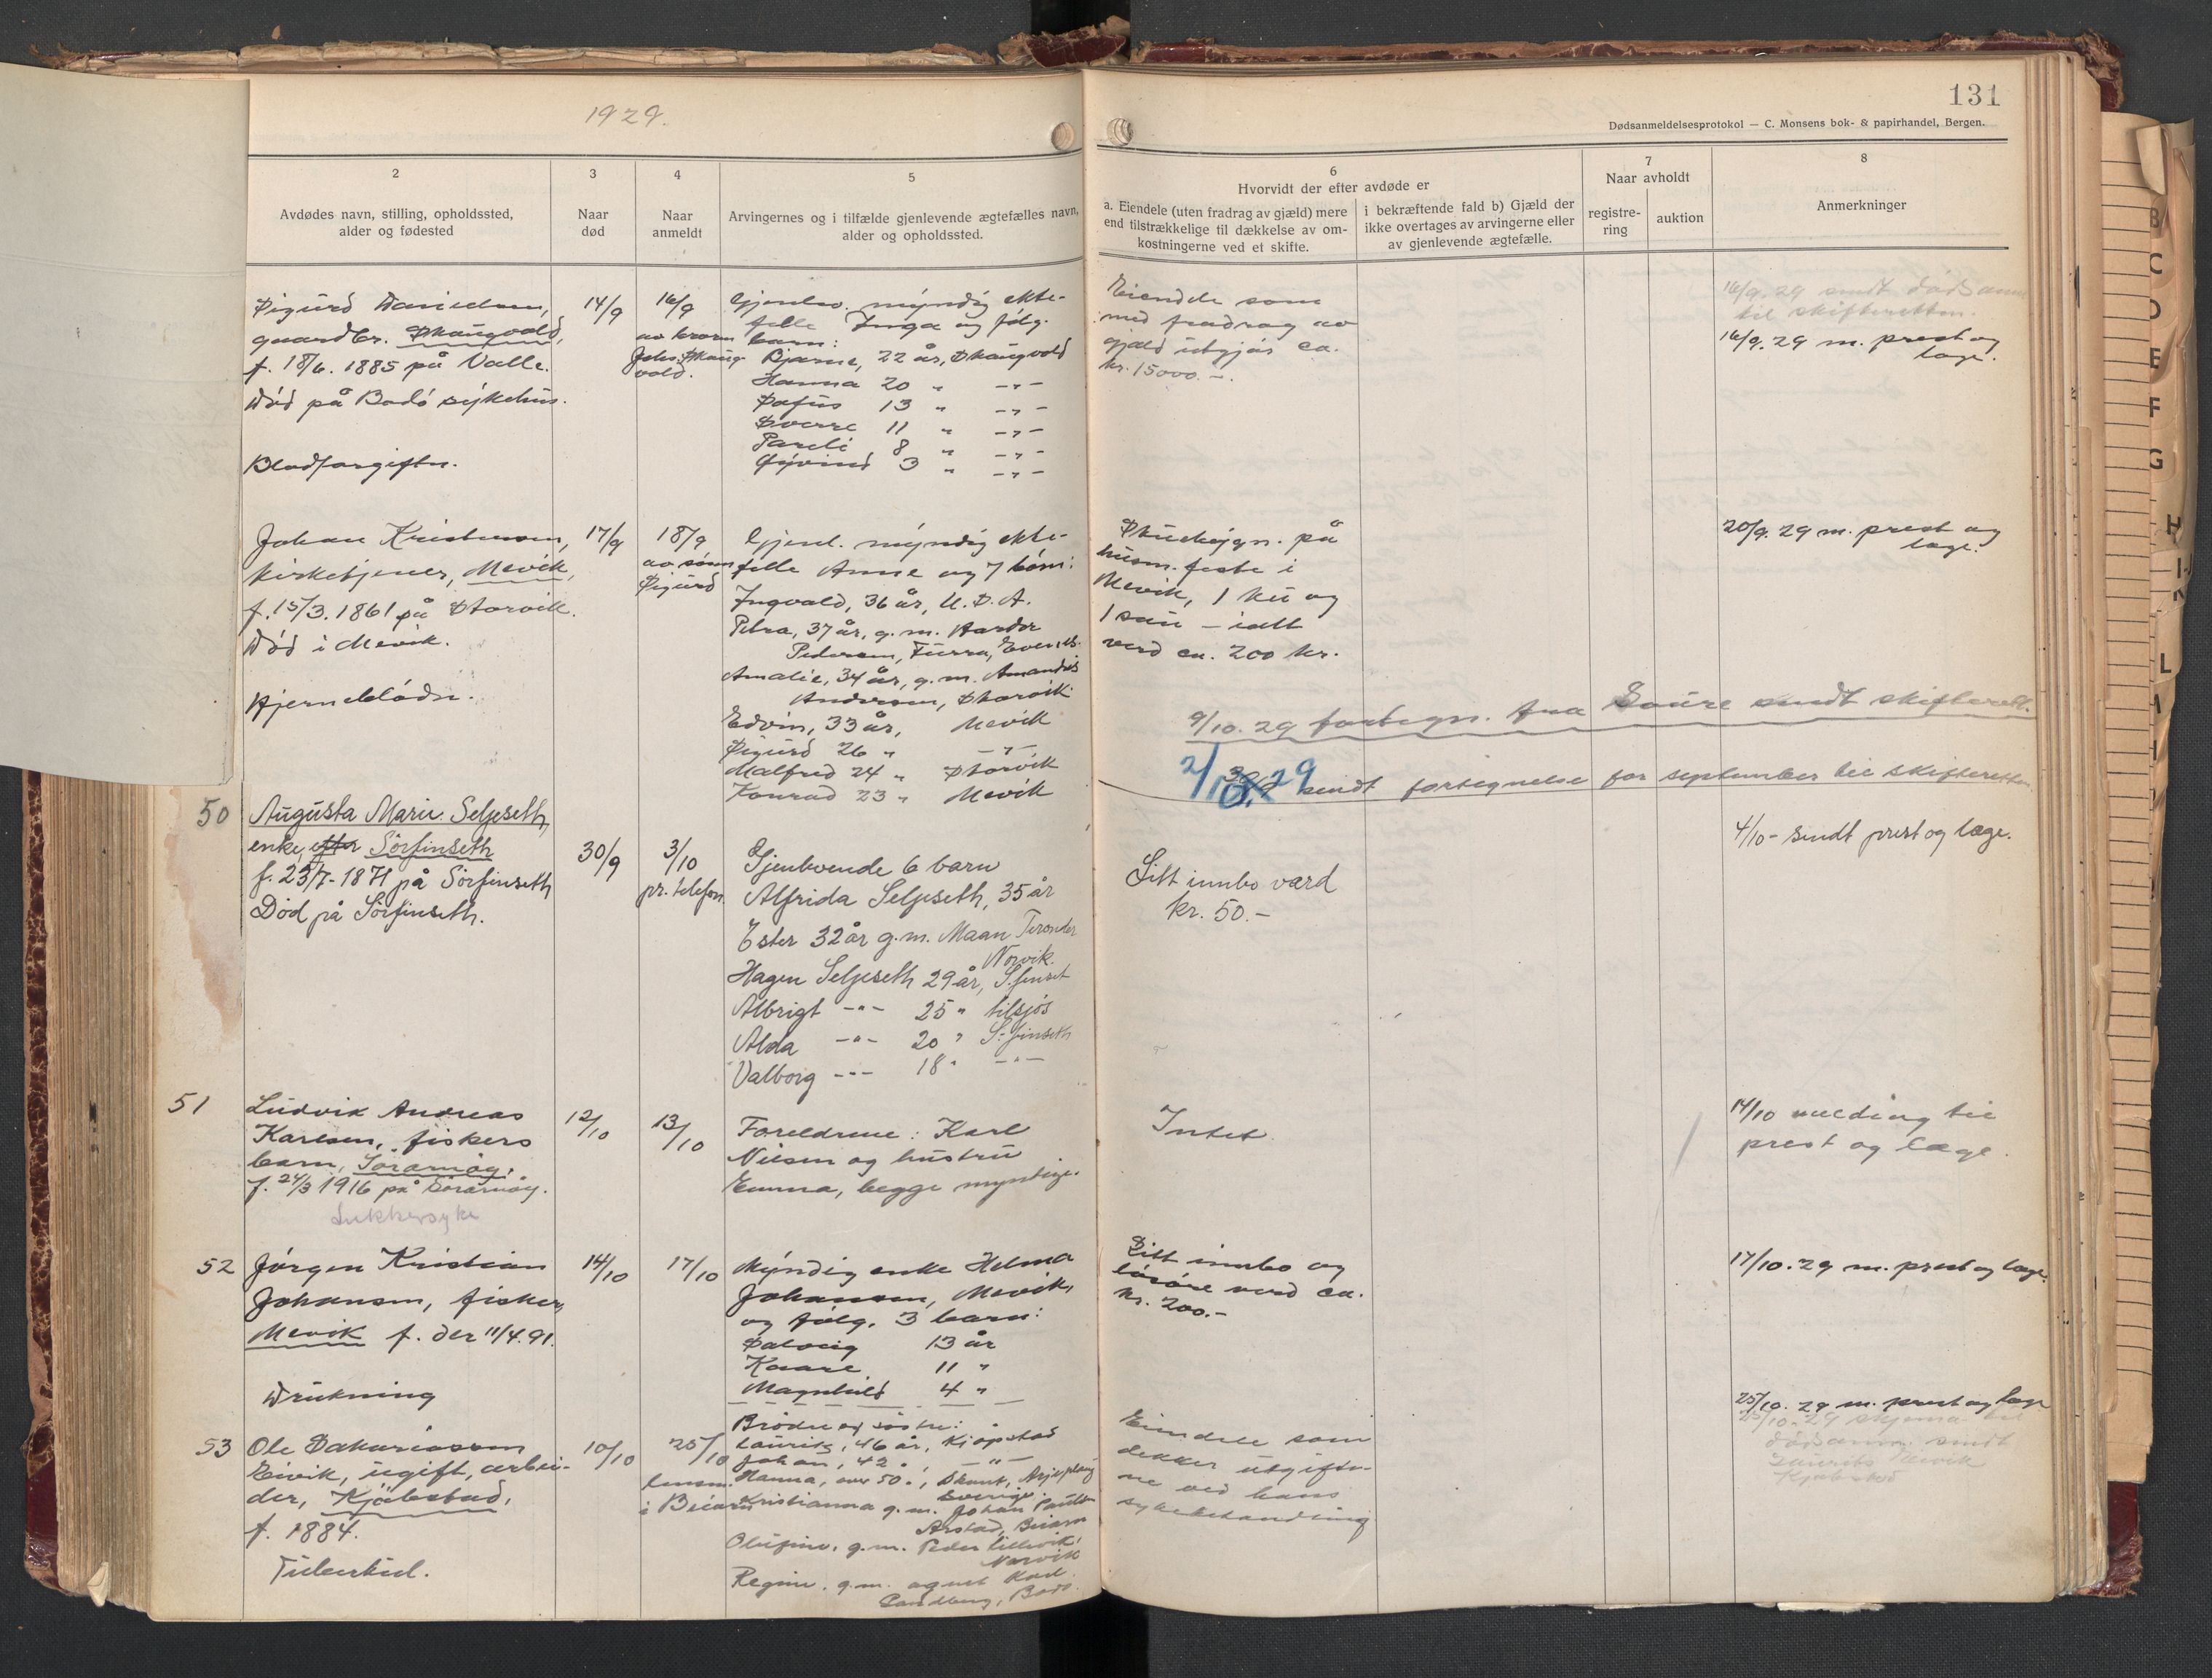 1929.
131
Dødsanmeldelsesprotokol — C. Monsens bok- & papirhandel, Bergen.
2
Avdødes navn, stilling, opholdssted,
alder og fødested
3
Naar
død
4
Naar
anmeldt
5
Arvingernes og i tilfælde gjenlevende ægtefælles navn,
alder og opholdssted.
6
Hvorvidt der efter avdøde er
a. Eiendele (uten fradrag av gjæld) mere
end tilstrækkelige til dækkelse av om-
kostningerne ved et skifte.
i bekræftende fald b) Gjæld der
ikke overtages av arvingerne eller
av gjenlevende ægtefælle.
7
Naar avholdt
registre-
ring
auktion
8
Anmerkninger
Sigurd Danielsen,
gaardbr. Skaugvold,
f. 18/6. 1885 på Valle.
Död på Bodö sykehus.
Blodforgiftn.
14/9
16/9
av brorn
Johs. Skaug-
vold.
Gjenlev. myndig ekte-
felle Inga og fölg.
barn:
Bjarne, 22 år, Skaugvold
Hanna 20 " -"-
13 " -"-
Sverre 11 " -"-
Pareli 8 " -"-
Öyvind 3 " -"-
Eiendele som
med fradrag av
gjæld utgjör ca.
kr. 15000.-.
16/9. 29 sendt dödsanm.
til skifteretten.
16/9. 29 m. prest og
læge.
Johan Kristensen,
kirketjener, Mevik,
f. 15/3. 1861 på Storvik.
Död i Mevik.
Hjerneblödn.
17/9
18/9
av sönn
Sigurd
Gjenl. myndig ekte-
felle Anne og 7 barn:
Ingvald, 36 år, U.S.A.
Petra, 37 år, g.m. Hardor
Pedersen, Furra,
Amalie, 34 år, g.m. Amandus
Andersen, Storvik
Edvin, 33 år, Mevik
Sigurd 26 " -"-
Malfred 24 " Storvik
Konrad 23 " Mevik
Stuebygn. på
husm. feste i
Mevik, 1 ku og
1 sau - ialt
verd ca. 200 kr.
20/9. 29 m. prest og
læge.
9/10. 29 fortegn. fra Saura sendt skifterett.
2/10. 29 sendt fortegnelse for september til skifteretten.
50
Augusta Marie Seljeseth,
enke, efter Sörfinseth
f. 23/7-1871 på Sörfinseth
Död på Sörfinseth.
30/9
3/10
pr. telefon
Gjenlevende 6 barn
Alfrida Seljeseth, 35 år
Ester 32 år g.m. Maan
Norvik.
Hagen Seljeseth 29 år, S.finset
Albrigt -"- 25 " tilsjös
Alda -"- 20 " S.finseth
Valborg -"- 18 " -"-
Litt innbo værd
kr. 50.-
4/10 - sendt prest og læge.
51
Ludvik Andreas
Karlsen, fiskers
barn, Sörarnöy,
f. 24/3 1916 på Sörarnöy.
Sukkersyke
12/10
13/10
Foreldrene: Karl
Nilsen og hustru
Emma, begge myndige.
Intet.
14/10 melding til
prest og læge.
52
Jörgen Kristian
Johansen, fisker,
Mevik f. der 11/4.91.
Drukning
14/10
17/10
Myndig enke Helma
Johansen, Mevik,
og fölg. 3 barn:
Solveig 13 år
Kaare 11 "
Magnhild 4 "
Litt innbo og
lösöre verd ca.
kr. 200.-
17/10. 29 m. prest og læge.
53
Ole Sakariassen
Eivik, ugift, arbei-
der, Kjöbstad,
f. 1884.
Tuberkul.
10/10
25/10
lensm.
i Beiarn
Brödre og söstre:
Laurits, 46 år, Kjöpstad
Johan, 42 " -"-
Hanna, over 50 ", Arjeplaug
Sverige.
Kristianna g.m. Johan
Arstad, Beiarn
g.m. Peder
Norvik
Regine. g.m. agent Karl
Sandberg, Bodö.
Eiendele som
dekker utgifte-
ne ved hans
sykebehandling
25/10. 29 m. prest og læge
25/10. 29 skjema til
dödsanm. sendt
Laurits Eivik
Kjöbstad
B
C
D
E
F
G
H
L